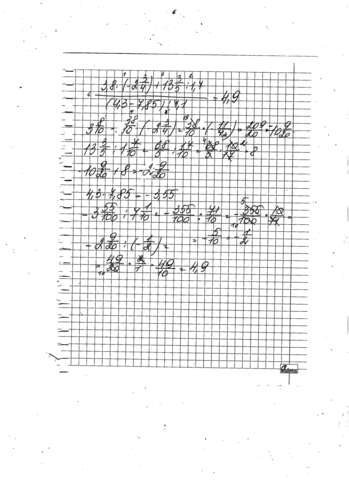 (3,8 · (-2 3/4) + 13 3/5 : 1,7) / ((4,3 - 7,85) : 7,1) = 4,9
3 8/10 = 38/10 · (-2 3/4) = 38/10 · (-11/4) = 209/20 = 10 9/20
13 3/5 : 1 7/10 = 68/5 : 17/10 = 68/5 · 10/17 = 8
-10 9/20 + 8 = -2 9/20
4,3 - 7,85 = -3,55
-3 55/100 : 7 1/10 = -355/100 : 71/10 = -355/100 · 10/71 =
-2 9/20 : (-1/2) = = -5/10 = -1/2
= 49/20 · 2/1 = 49/10 = 4,9